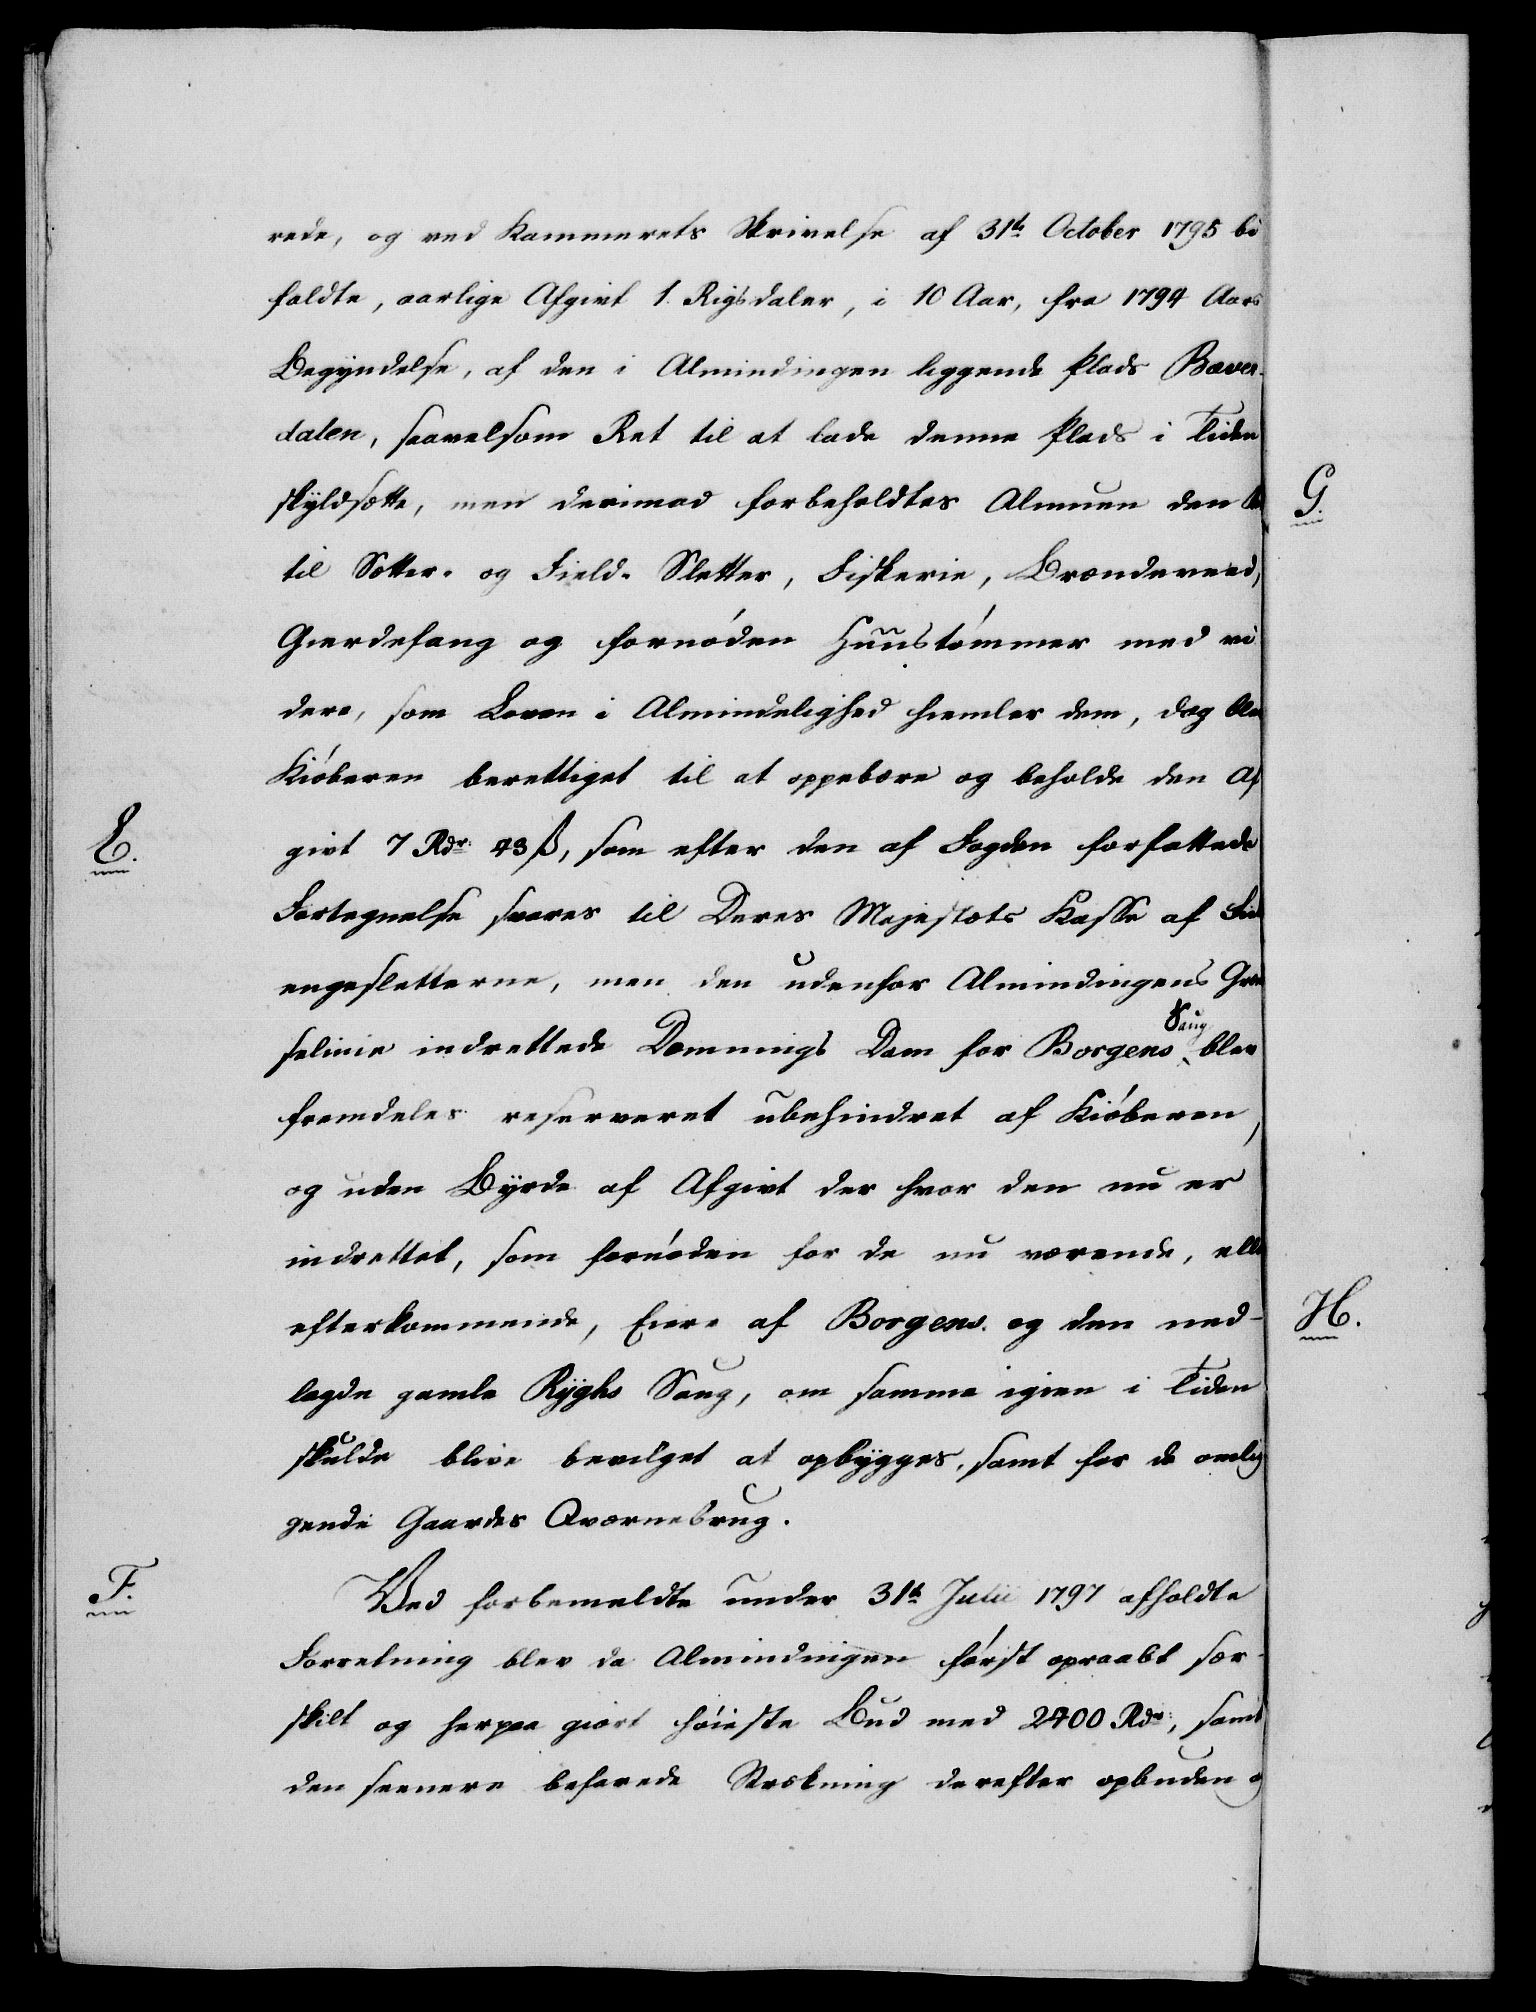 rede, og ved Kammerets Skrivelse af 31te October 1795 bi
faldte, aarlige Afgivt 1. Rigsdaler, i 10 Aar, fra 1794 Aars
Begyndelse, af den i Almindingen liggende Plads Bæver-
dalen, saavelsom Ret til at lade denne Plads i Tiden
skyldsætte, men derimod forbeholdtes Almuen den
G.
til Sætter- og Field-Sletter, Fiskerie, Brændeveed,
Gierdefang og fornöden Huustömmer med vi
dere, som Loven i Almindelighed hiemler dem, dog blev
Kiöberen berettiget til at oppebære og beholde den Af
E.
givt 7 Rdr. 43 ß, som efter den af Fogden forfattede
Fortegnelse svares til Deres Majestæts Kasse af
engesletterne, men den udenfor Almindingens Græn
selinie indrettede Dæmnings Dam for Borgens Saug blev
fremdeles reserveret ubehindret af Kiöberen,
og uden Byrde af Afgivt der hvor den nu er
indrettet, som fornöden for de nu værende, elle
efterkommende, Eiere af Borgens og den ned-
H.
lagde gamle Ryghs Saug, om samme igien i Tiden
skulde blive bevilget at opbygges, samt for de omlig
gende Gaardes Qværnebrug.
F.
Ved forbemeldte under 31te Julii 1797 afholdte
Forretning blev da Almindingen först opraabt sær-
skilt og herpaa giort höieste Bud med 2400 Rdr., samt
den seenere befarede Strækning derefter opbuden og